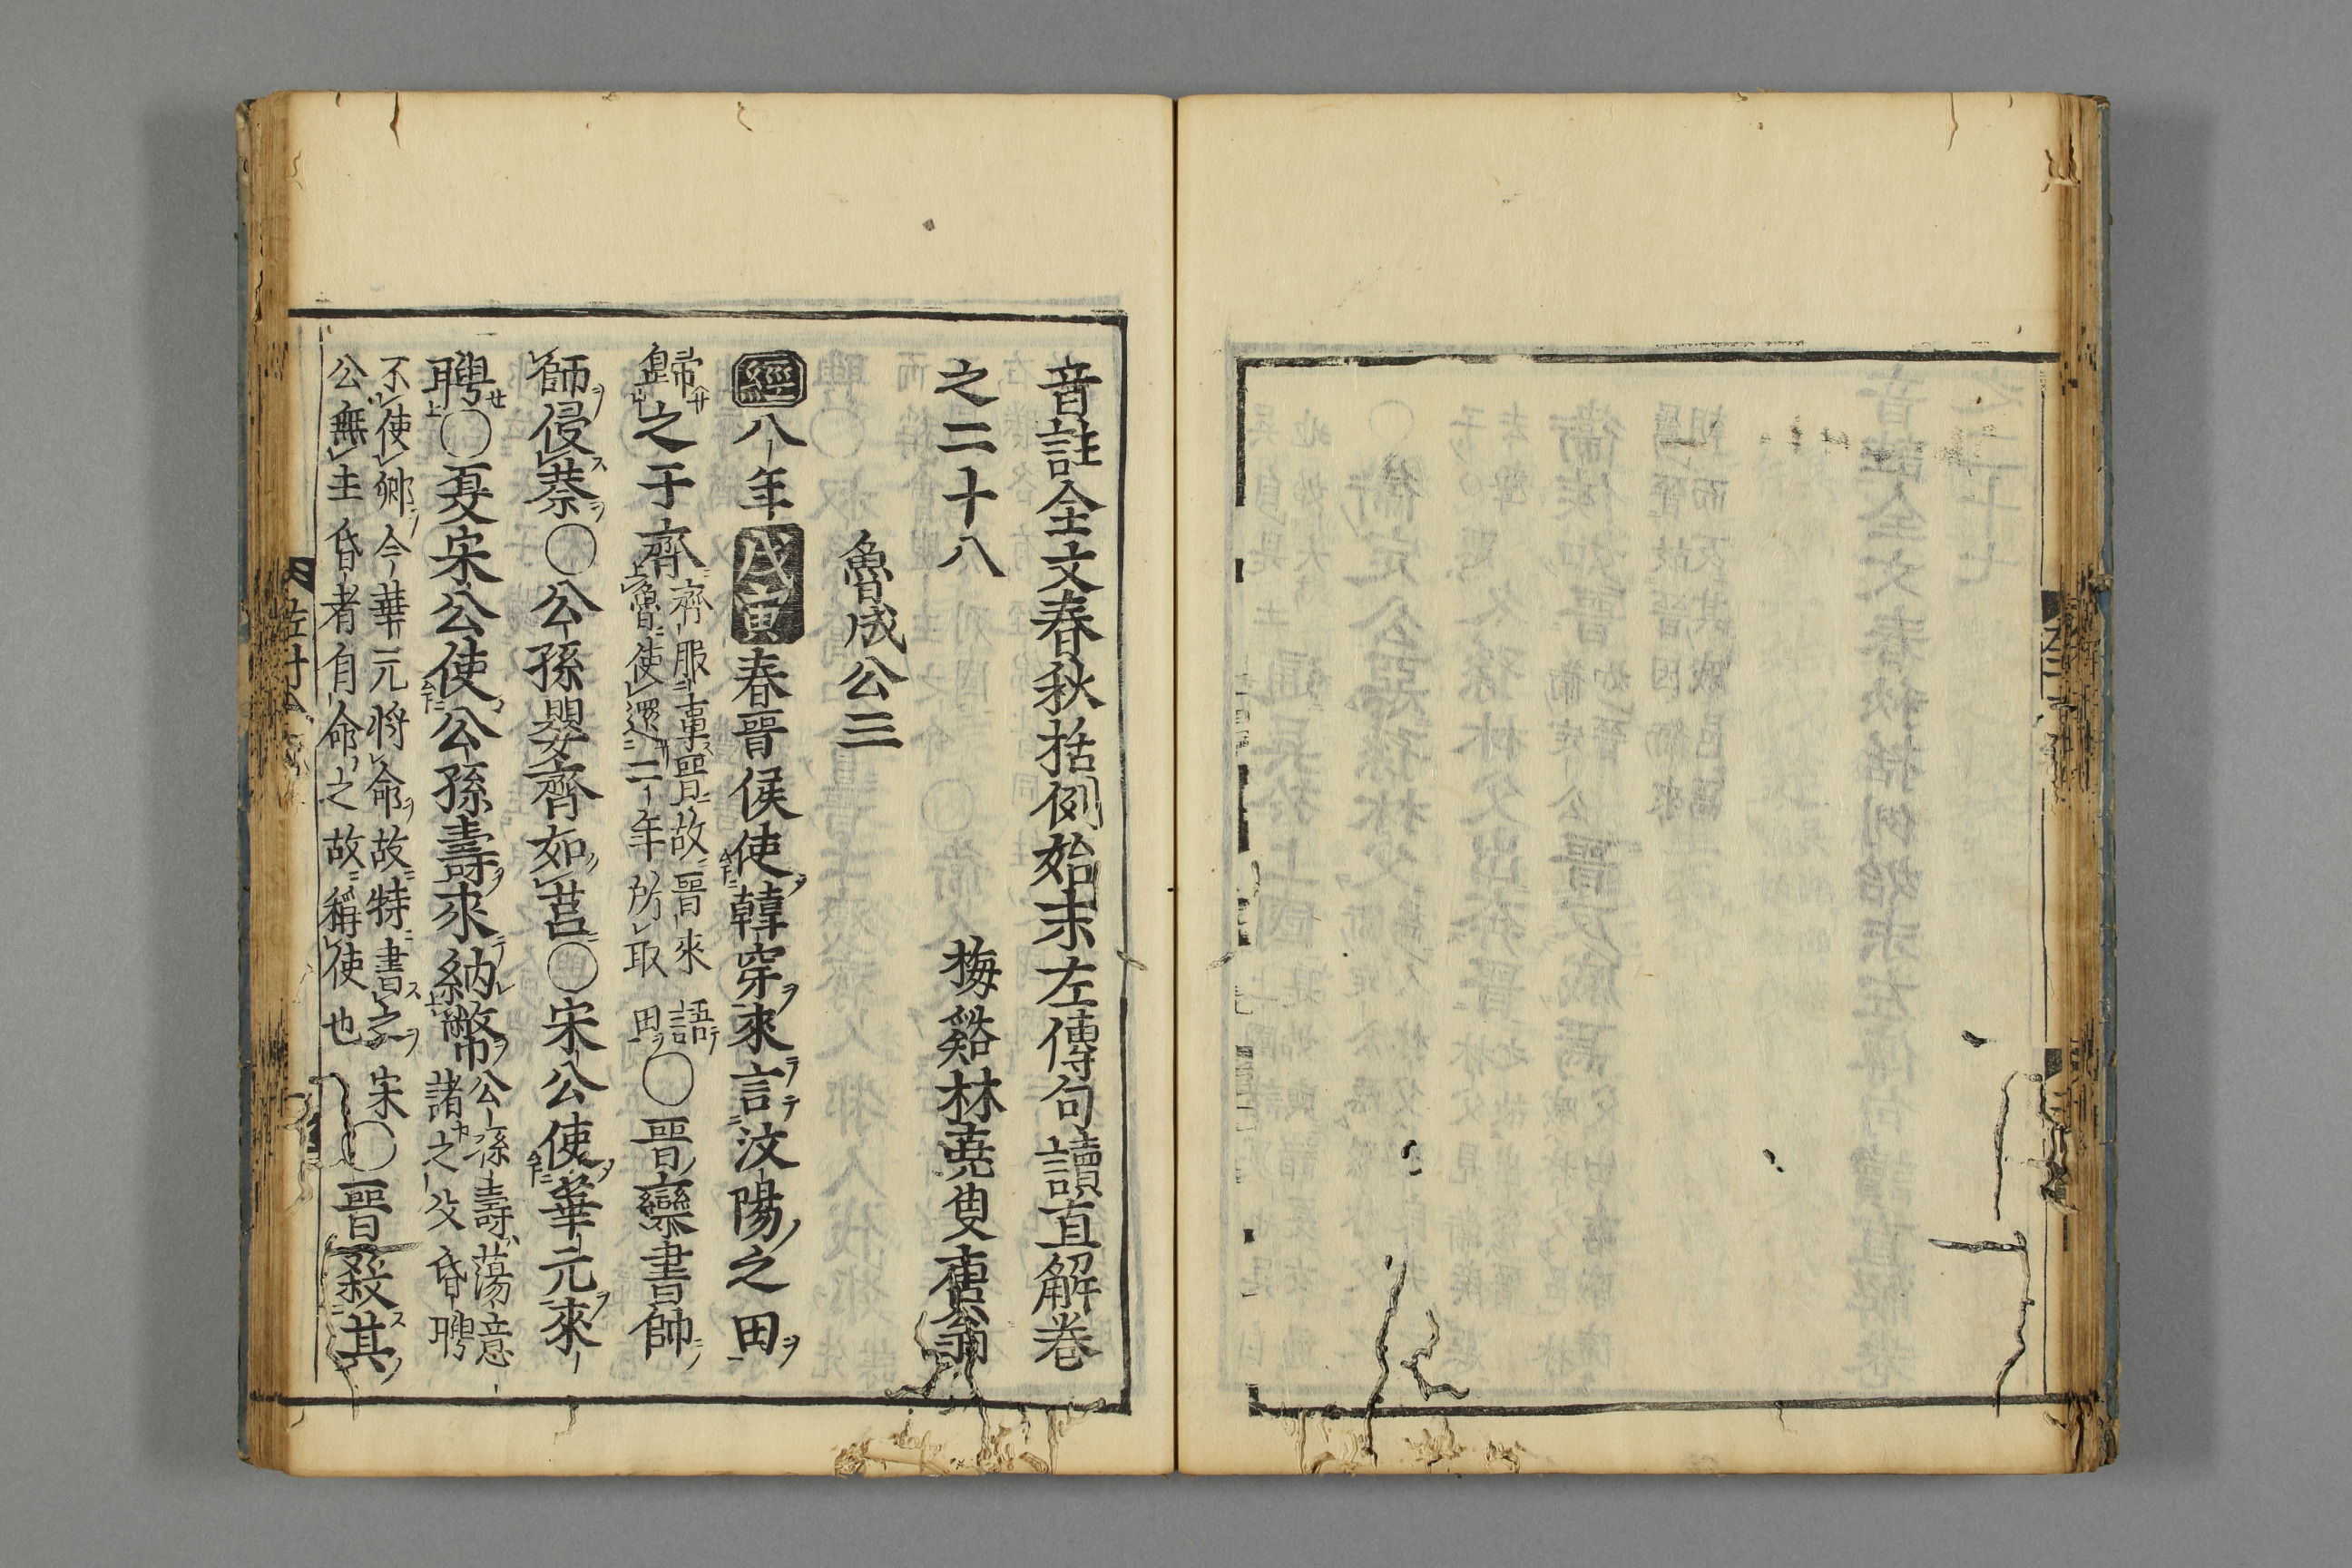 音註全文春秋括例始末左傳句讀直解卷
之二十八　梅谿林堯叟唐翁
魯成公三
經八年戊寅春晉侯使韓穿來言汶陽之田
歸之于齊齊服事晉故晉來語魯使還二年所取田○晉欒書帥
師侵蔡○公孫嬰齊如莒○宋公使華元來
聘○夏宋公使公孫壽來納幣公孫壽蕩意諸之父昏聘
不使卿今華元將命故特書之宋公無主昏者自命之故稱使也○晉殺其